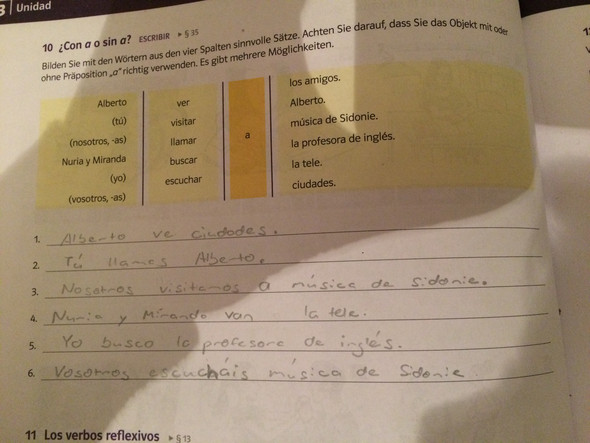 3 Unidad
10 ¿Con a o sin a? ESCRIBIR ▸ § 35
Bilden Sie mit den Wörtern aus den vier Spalten sinnvolle Sätze. Achten Sie darauf, dass Sie das Objekt mit oder
ohne Präposition „a“ richtig verwenden. Es gibt mehrere Möglichkeiten.
Alberto
(tú)
(nosotros, -as)
Nuria y Miranda
(yo)
(vosotros, -as)
ver
visitar
llamar
buscar
escuchar
a
los amigos.
Alberto.
música de Sidonie.
la profesora de inglés.
la tele.
ciudades.
1. Alberto ve ciudades.
2. Tú llamas Alberto.
3. Nosotros visitamos a música de Sidonie.
4. Nuria y Miranda van la tele.
5. Yo busco la profesora de inglés.
6. Vosotros escucháis música de Sidonie
11 Los verbos reflexivos ▸ § 13